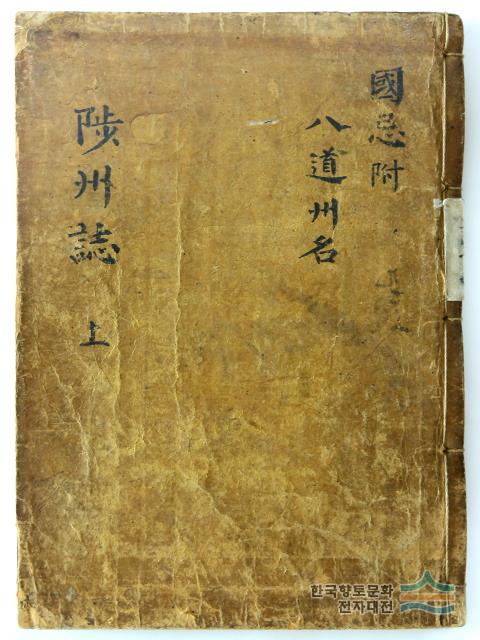 國忌附
八道州名
陟州誌 上
한국향토문화
전자대전